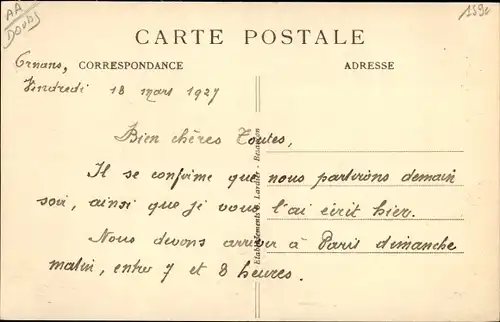 AA
DOUBS
1590
CARTE POSTALE
Ornans, CORRESPONDANCE
ADRESSE
Vendredi 18 mars 1927
Bien chères Toutes,
Il se confirme que nous partirons demain
soir, ainsi que je vous l'ai écrit hier.
Nous devons arriver à Paris dimanche
matin, entre 7 et 8 heures.
Etablissements C. Lardier - Besançon